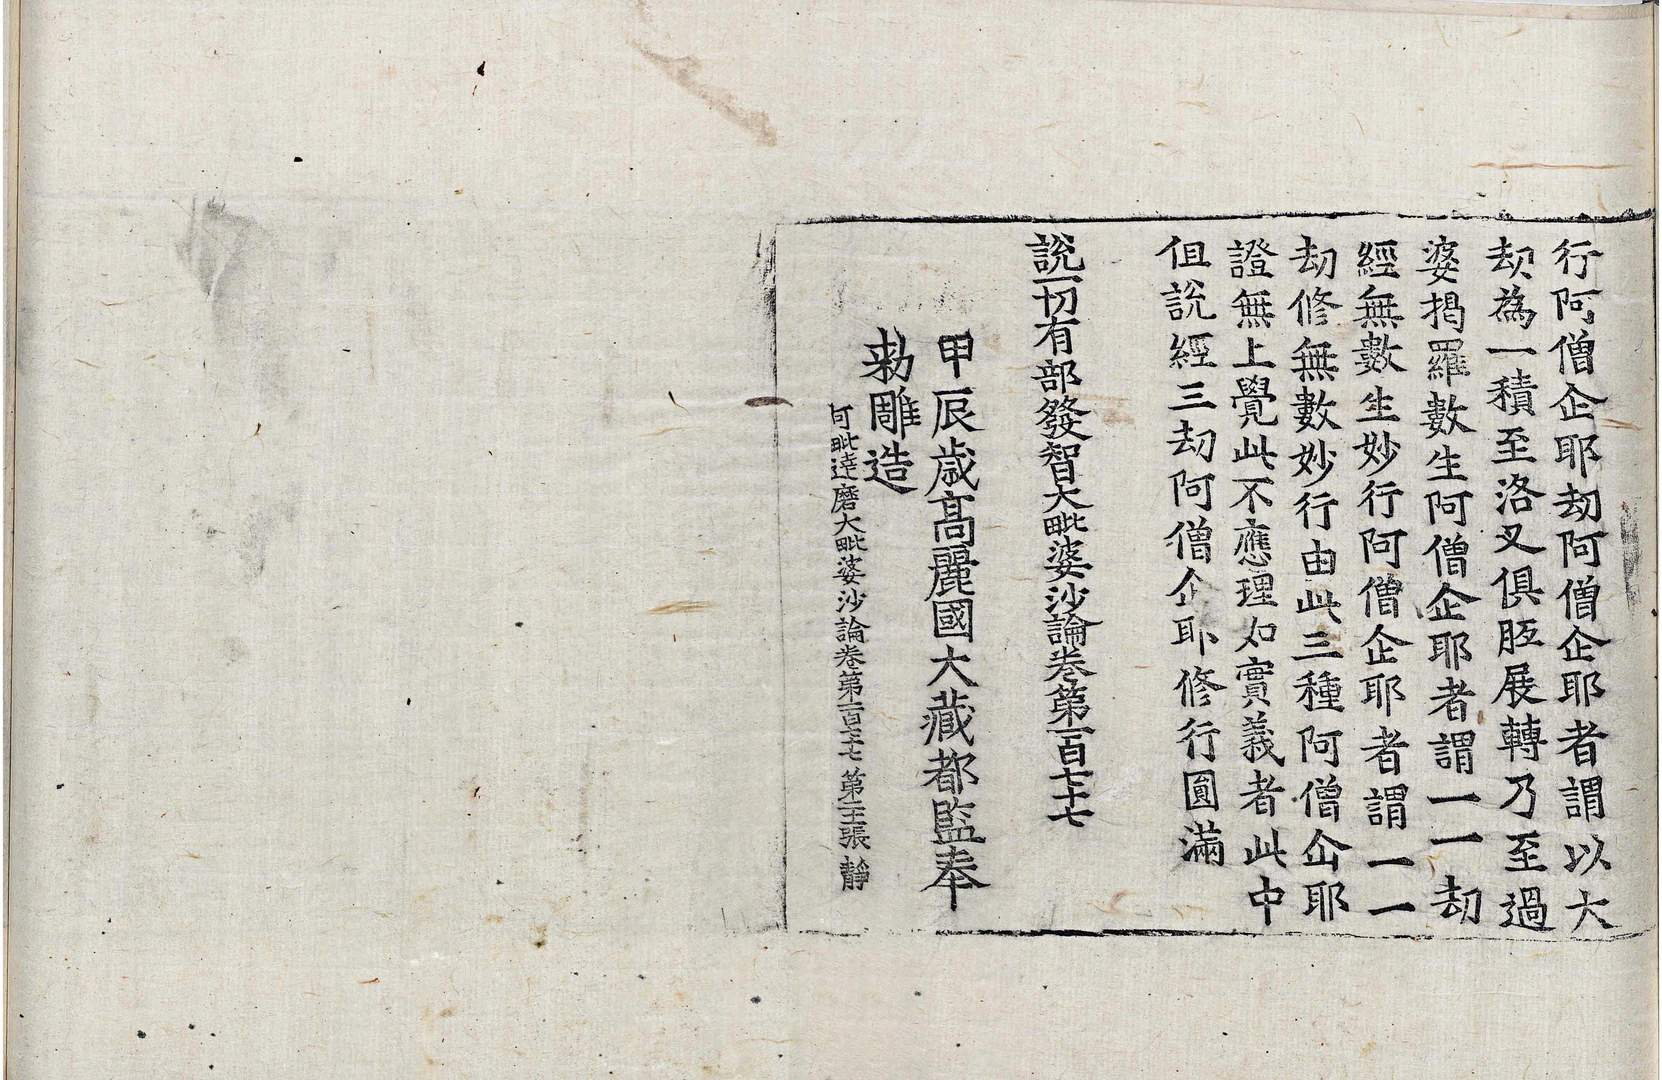 行阿僧企耶刧阿僧企耶者謂以大
刧爲一積至洛叉俱胝展轉乃至過
婆揭羅數生阿僧企耶者謂一一刧
經無數生妙行阿僧企耶者謂一一
刧修無數妙行由此三種阿僧企耶
證無上覺此不應理如實義者此中
但說經三刧阿僧企耶修行圓滿
說一切有部發智大毗婆沙論卷第一百七十七
甲辰歲高麗國大藏都監奉
勑雕造
阿毗達磨大毗婆沙論卷第一百七十七 第 張 靜